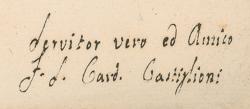 Servitor vero ed Amico
F. S. Card. Castiglioni